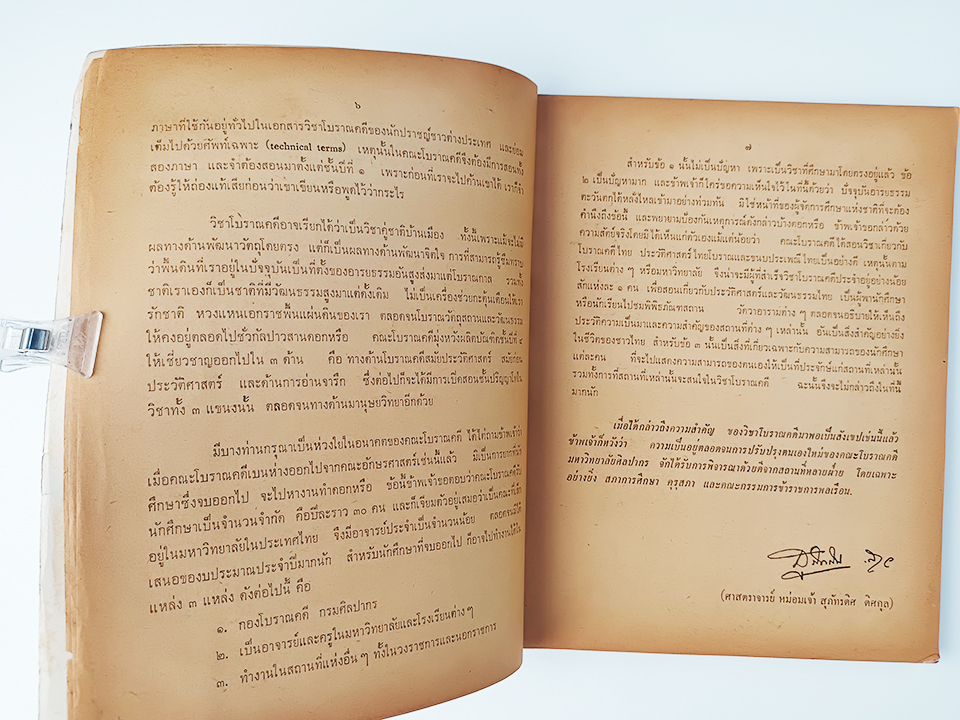 ๖
ภาษาที่ใช้กันอยู่ทั่วไปในเอกสารวิชาโบราณคดีของนักปราชญ์ชาวต่างประเทศ และย่อม
เต็มไปด้วยศัพท์เฉพาะ (technical terms) เหตุนั้นในคณะโบราณคดีจึงต้องมีการสอนทั้ง
สองภาษา และจำต้องสอนมาตั้งแต่ชั้นปีที่ ๑ เพราะก่อนที่เราจะไปค้านเขาได้ เราก็จำ
ต้องรู้ให้ถ่องแท้เสียก่อนว่าเขาเขียนหรือพูดไว้ว่ากระไร
วิชาโบราณคดีอาจเรียกได้ว่าเป็นวิชาคู่ชาติบ้านเมือง ทั้งนี้เพราะแม้จะไม่มี
ผลทางด้านพัฒนาวัตถุโดยตรง แต่ก็เป็นผลทางด้านพัฒนาจิตใจ การที่สามารถรู้ซึมทราบ
ว่าพื้นดินที่เราอยู่ในปัจจุบันเป็นที่ตั้งของอารยธรรมอันสูงส่งมาแต่โบราณกาล รวมทั้ง
ชาติเราเองก็เป็นชาติที่มีวัฒนธรรมสูงมาแต่ดั้งเดิม ไม่เป็นเครื่องช่วยกะตุ้นเตือนให้เรา
รักชาติ หวงแหนเอกราชพื้นแผ่นดินของเรา ตลอดจนโบราณวัตถุสถานและวัฒนธรรม
ให้คงอยู่ตลอดไปชั่วกัลปาวสานดอกหรือ คณะโบราณคดีมุ่งหวังผลิตบัณฑิตชั้นปีที่ ๔
ให้เชี่ยวชาญออกไปใน ๓ ด้าน คือ ทางด้านโบราณคดีสมัยประวัติศาสตร์ สมัยก่อน
ประวัติศาสตร์ และด้านการอ่านจารึก ซึ่งต่อไปก็จะได้มีการเปิดสอนชั้นปริญญาโทใน
วิชาทั้ง ๓ แขนงนั้น ตลอดจนทางด้านมานุษยวิทยาอีกด้วย
มีบางท่านกรุณาเป็นห่วงใยในอนาคตของคณะโบราณคดี ได้ไถ่ถามข้าพเจ้าว่า
เมื่อคณะโบราณคดีเบนห่างออกไปจากคณะอักษรศาสตร์เช่นนี้แล้ว มิเป็นการยากที่นัก
ศึกษาซึ่งจบออกไป จะไปหางานทำดอกหรือ ข้อนี้ข้าพเจ้าขอตอบว่าคณะโบราณคดีรับ
นักศึกษาเป็นจำนวนจำกัด คือปีละราว ๓๐ คน และก็เจียมตัวอยู่เสมอว่าเป็นคณะที่เล็ก
อยู่ในมหาวิทยาลัยในประเทศไทย จึงมีอาจารย์ประจำเป็นจำนวนน้อย ตลอดจนมิได้
เสนอของบประมาณประจำปีมากนัก สำหรับนักศึกษาที่จบออกไป ก็อาจไปทำงานได้ใน
แหล่ง ๓ แหล่ง ดังต่อไปนี้ คือ
๑. กองโบราณคดี กรมศิลปากร
๒. เป็นอาจารย์และครูในมหาวิทยาลัยและโรงเรียนต่าง ๆ
๓. ทำงานในสถานที่แห่งอื่น ๆ ทั้งในวงราชการและนอกราชการ
๗
สำหรับข้อ ๑ นั้นไม่เป็นปัญหา เพราะเป็นวิชาที่ศึกษามาโดยตรงอยู่แล้ว ข้อ
๒ เป็นปัญหามาก และข้าพเจ้าก็ใคร่ขอความเห็นใจไว้ในที่นี้ด้วยว่า ปัจจุบันอารยธรรม
ตะวันตกได้หลั่งไหลเข้ามาอย่างท่วมท้น มิใช่หน้าที่ของผู้จัดการศึกษาแห่งชาติที่จะต้อง
คำนึงถึงข้อนี้ และพยายามป้องกันเหตุการณ์ดังกล่าวบ้างดอกหรือ ข้าพเจ้าขอกล่าวด้วย
ความสัตย์จริงโดยมิได้เห็นแก่ตัวเองแม้แต่น้อยว่า คณะโบราณคดีได้สอนวิชาเกี่ยวกับ
โบราณคดีไทย ประวัติศาสตร์ไทยโบราณและขนบประเพณีไทยเป็นอย่างดี เหตุนั้นตาม
โรงเรียนต่าง ๆ หรือมหาวิทยาลัย จึงน่าจะมีผู้ที่สำเร็จวิชาโบราณคดีประจำอยู่อย่างน้อย
สักแห่งละ ๑ คน เพื่อสอนเกี่ยวกับประวัติศาสตร์และวัฒนธรรมไทย เป็นผู้พานักศึกษา
หรือนักเรียนไปชมพิพิธภัณฑสถาน วัดวาอารามต่าง ๆ ตลอดจนอธิบายให้เห็นถึง
ประวัติความเป็นมาและความสำคัญของสถานที่ต่าง ๆ เหล่านั้น อันเป็นสิ่งสำคัญอย่างยิ่ง
ในชีวิตของชาวไทย สำหรับข้อ ๓ นั้นเป็นสิ่งที่เกี่ยวเฉพาะกับความสามารถของนักศึกษา
แต่ละคน ที่จะไปแสดงความสามารถของตนเองให้เป็นที่ประจักษ์แก่สถานที่เหล่านั้น
รวมทั้งการที่สถานที่เหล่านั้นจะสนใจในวิชาโบราณคดี ฉะนั้นจึงจะไม่กล่าวถึงในที่นี้
มากนัก
เมื่อได้กล่าวถึงความสำคัญ ของวิชาโบราณคดีมาพอเป็นสังเขปเช่นนี้แล้ว
ข้าพเจ้าก็หวังว่า ความเป็นอยู่ตลอดจนการปรับปรุงตนเองใหม่ของคณะโบราณคดี
มหาวิทยาลัยศิลปากร จักได้รับการพิจารณาด้วยดีจากสถานที่หลายฝ่าย โดยเฉพาะ
อย่างยิ่ง สภาการศึกษา คุรุสภา และคณะกรรมการข้าราชการพลเรือน.
(ศาสตราจารย์ หม่อมเจ้า สุภัทรดิศ ดิศกุล)